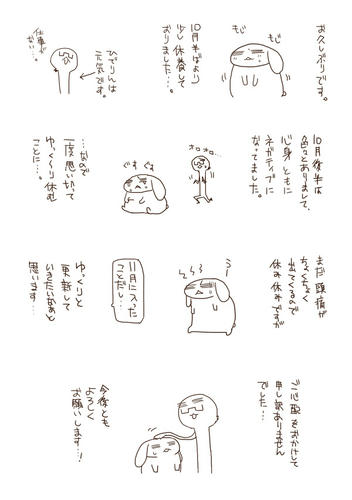 お久しぶりです。
もじ
もじ
10月半ばより
少し休養して
おりました…。
ひでりんは
元気です。
仕事が
ない…。
10月後半は
色々とありまして、
心身ともに
ネガティブに
なってました。
オロオロ…
ぐすぐす
…なので
一度思い切って
ゆっくり休む
ことに…。
まだ頭痛が
ちょくちょく
出てくるので
休み休みですが
11月に入った
ことだし…
ゆっくりと
更新して
いきたいなぁと
思います…
ご心配をおかけして
申し訳ありません
でした…
今後とも
よろしく
お願いします…!